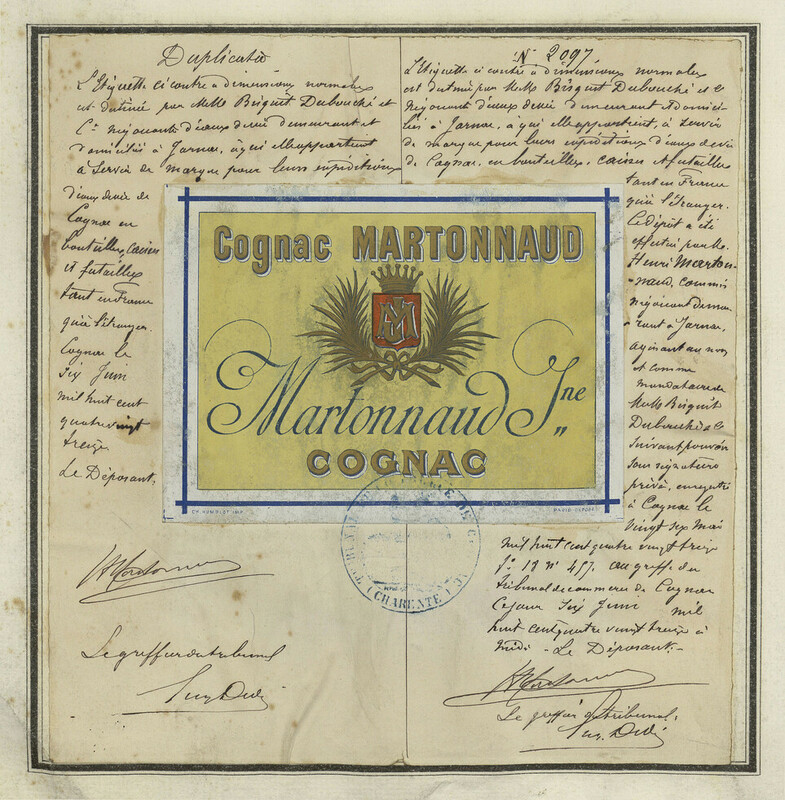 Duplicata
L'Etiquette ci contre a dimensions normales
est destinée par M.M. Bisquit Dubouché et
Cie négociants d'eaux de vie demeurant et
domiciliés à Jarnac, à qui elle appartient
à servir de marque pour leurs expéditions
d'eaux de vie de
Cognac en
bouteilles, caisses
et futailles
tant en France
qu'à l'étranger.
Cognac le
Six Juin
mil huit cent
quatre vingt
treize
Le Déposant.
Le greffier du tribunal
N° 2097
L'Etiquette ci contre à dimensions normales
est destinée par M.M. Bisquit Dubouché et Cie
négociants d'eaux de vie demeurant et domici-
liés à Jarnac, à qui elle appartient, à servir
de marque pour leurs expéditions d'eaux de vie
de Cognac, en bouteilles, caisses et futailles
tant en France
qu'à l'étranger.
Le dépôt a été
effectué par M.
Henri Marton-
naud, commis
négociant demeu-
rant à Jarnac,
agissant au nom
et comme
mandataire de
M.M. Bisquit
Dubouché & Cie
suivant pouvoir
sous signatures
privé, enregistré
à Cognac le
vingt six mai
mil huit cent quatre vingt treize
f° 18 n° 457. au greffe du
tribunal de commerce de Cognac
Ce jour Six Juin mil
huit cent quatre vingt treize à
midi - Le Déposant -
Le greffier du tribunal.
Cognac MARTONNAUD
M
Martonnaud Jne
COGNAC
(CHARENTE)